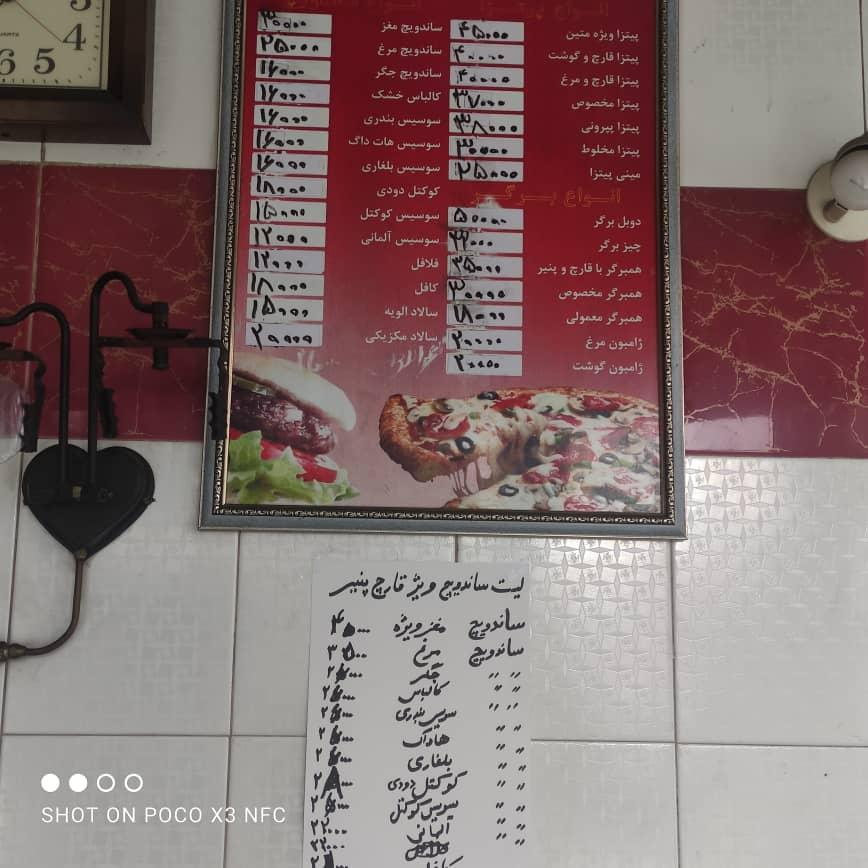 انواع پیتزا
پیتزا ویژه متین ۴۵۰۰۰
پیتزا قارچ و گوشت ۴۰۰۰۰
پیتزا قارچ و مرغ ۴۰۰۰۰
پیتزا مخصوص ۳۷۰۰۰
پیتزا پپرونی ۳۸۰۰۰
پیتزا مخلوط ۳۰۰۰۰
مینی پیتزا ۲۵۰۰۰
انواع برگر
دوبل برگر ۵۰۰۰۰
چیز برگر
همبرگر با قارچ و پنیر ۳۵۰۰۰
همبرگر مخصوص ۳۰۰۰۰
همبرگر معمولی ۱۸۰۰۰
ژامبون مرغ ۲۰۰۰۰
ژامبون گوشت ۲۰۰۰۰
انواع
ساندویچ مغز ۳۰۰۰۰
ساندویچ مرغ ۲۵۰۰۰
ساندویچ جگر ۱۶۰۰۰
کالباس خشک ۱۶۰۰۰
سوسیس بندری ۱۶۰۰۰
سوسیس هات داگ ۱۶۰۰۰
سوسیس بلغاری ۱۶۰۰۰
کوکتل دودی ۱۸۰۰۰
سوسیس کوکتل ۱۵۰۰۰
سوسیس آلمانی ۱۲۰۰۰
فلافل ۱۲۰۰۰
کافل ۱۸۰۰۰
سالاد الویه ۱۵۰۰۰
سالاد مکزیکی ۲۰۰۰۰
لیت ساندویچ ویژ قارچ پنیر
ساندویچ مغز ویژه
ساندویچ مرغ ۳۵۰۰۰
〃 〃 جگر
〃 〃 کالباس
سوسیس بندری
〃 〃 هاداگ
〃 〃 بلغاری
〃 〃 کوکتل دودی
〃 〃 سوسیس کوکتل
〃 〃 آلمانی ۲۲۰۰۰
۲۲۰۰۰
QUARTZ
3
4
5
6
SHOT ON POCO X3 NFC